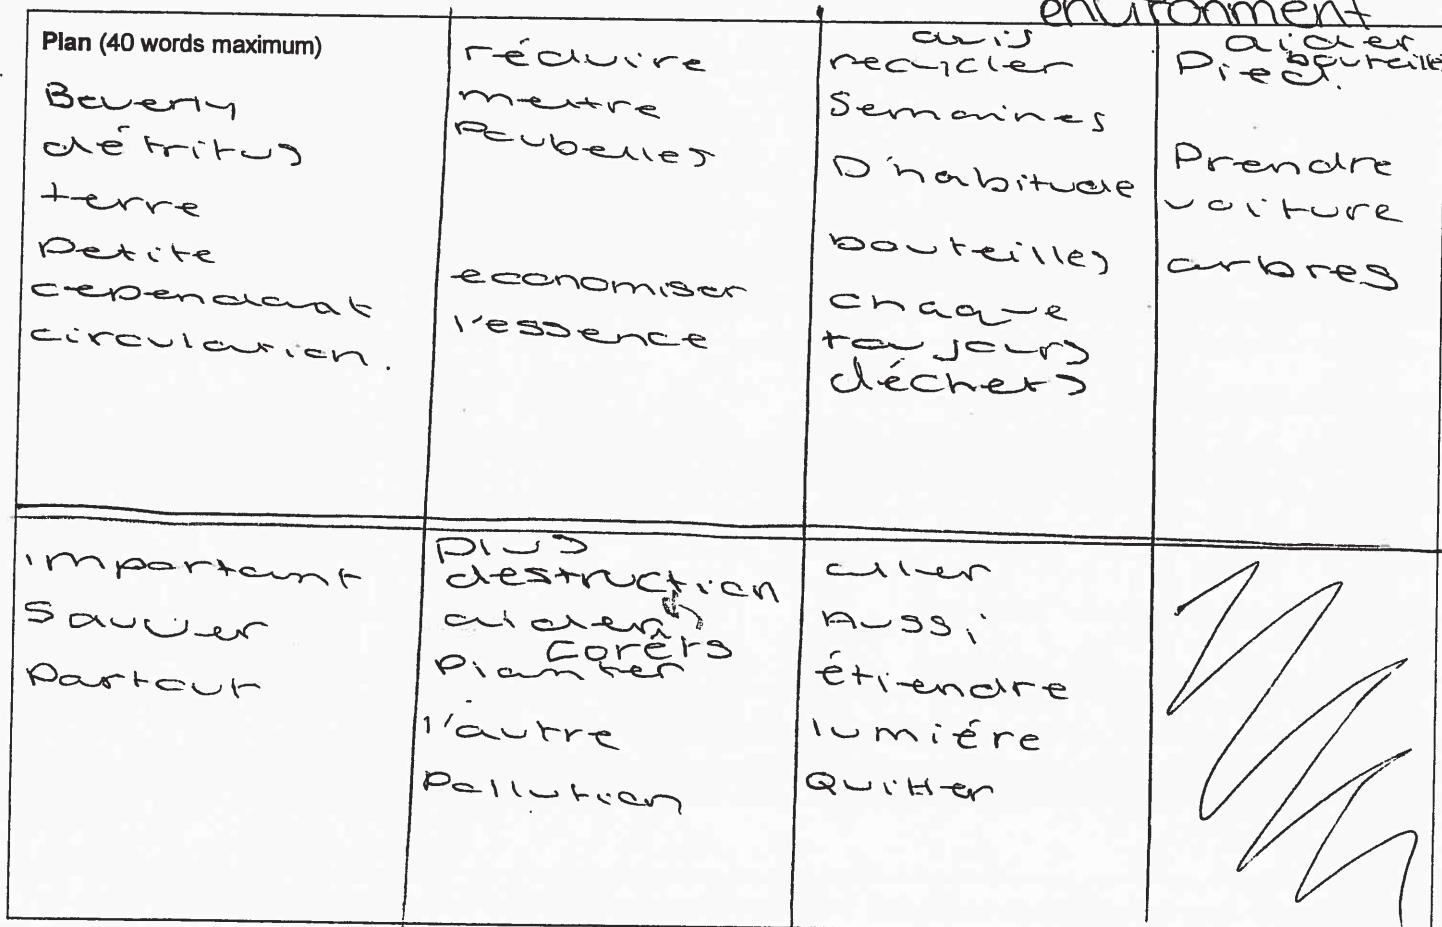 environment
Plan (40 words maximum)
Beverly
détritus
terre
petite
cependant
circulation.
réduire
mettre
Poubelles
economiser
l'essence
avis
recycler
Semaines
D'habitude
bouteilles
chaque
toujours
déchets
aider
bouteille
Pied.
Prendre
voiture
arbres
important
Sauver
Partout
plus
destruction
aider
Forêts
Planter
l'autre
Pollution
aller
Aussi
étiendre
lumiére
Quitter